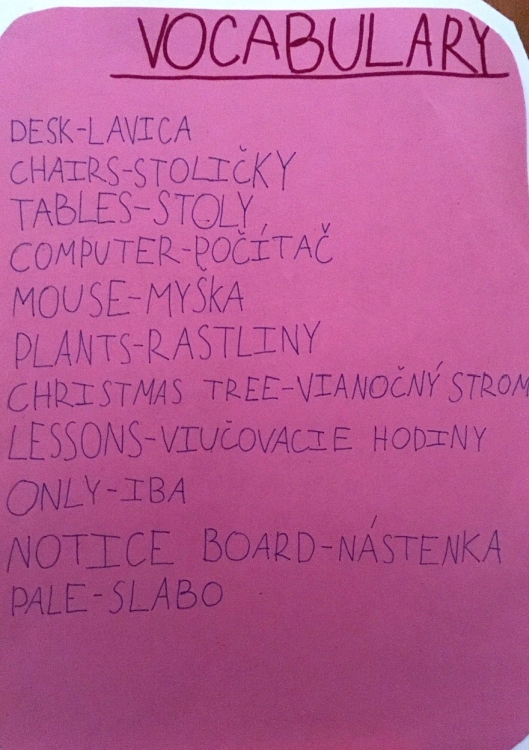 VOCABULARY
DESK-LAVICA
CHAIRS-STOLIČKY
TABLES-STOLY
COMPUTER-POČÍTAČ
MOUSE-MYŠKA
PLANTS-RASTLINY
CHRISTMAS TREE-VIANOČNÝ STROM
LESSONS-VIUČOVACIE HODINY
ONLY-IBA
NOTICE BOARD-NÁSTENKA
PALE-SLABO